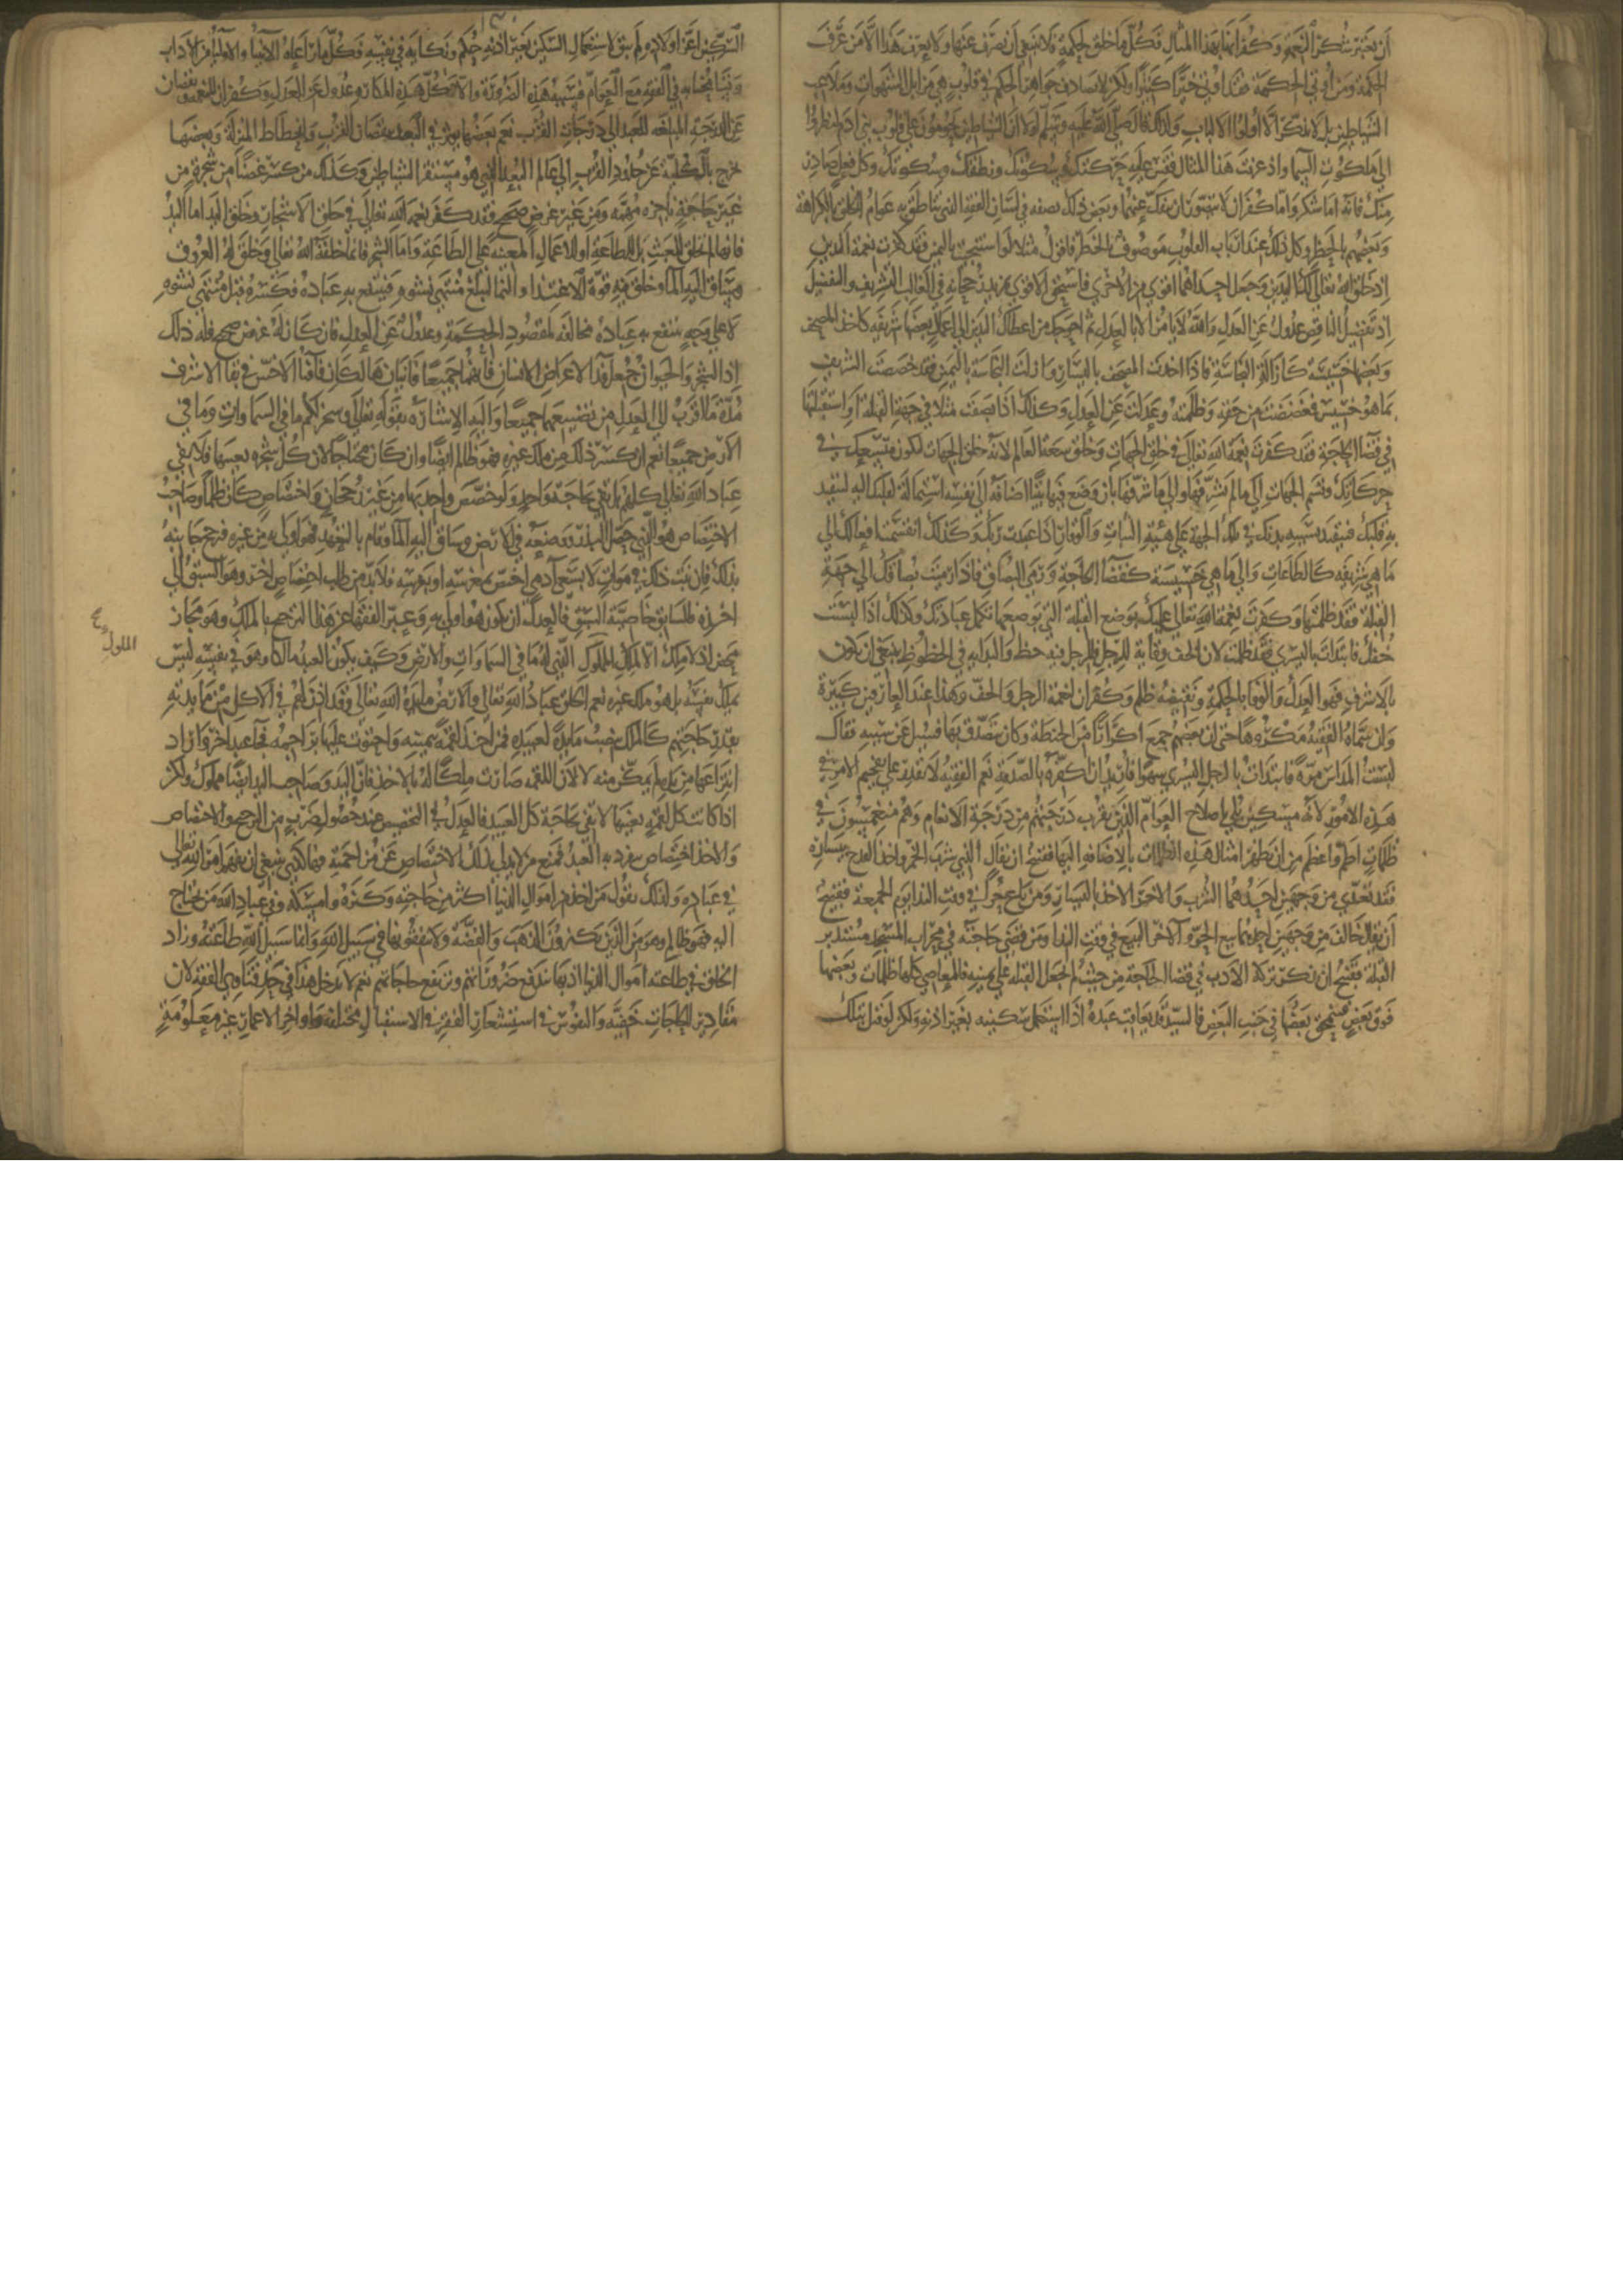 ان نعتبر شكر النعمة وكفرانها بهذا المثال فكل ما خلق لحكمة فلا ينبغي ان يصرف عنها ولا يعرف هذا الا من عرف
الحكمة ومن اوتي الحكمة فقد اوتي خيرا كثيرا ولكن لا تصادف جواهر الحكم في قلوب هي مزابل الشهوات وملاعب
الشياطين بل لا يتذكر الا اولوا الالباب ولذلك قال صلى الله عليه وسلم لولا ان الشياطين يحومون على قلوب بني ادم لنظروا
الى ملكوت السما واذ عرفت هذا المثال فقس عليه حركتك وسكونك ونطقك وسكوتك وكل فعل صادر
منك فانه اما شكر واما كفران لا يتصور ان ينفك عنهما وبعض ذلك نصفه في لسان الفقه الذي يناطق به عوام الخلق بالكراهة
وبعضهم بالحظر وكل ذلك عند ارباب القلوب موصوف بالحظر فاقول مثلا لو استنجيت باليمين فقد كفرت نعمة اليدين
اذ خلق الله تعالى لك اليدين وجعل احداهما اقوى من الاخرى فاستحق الاقوى بمزيد رجحانه في الغالب التشريف والتفضيل
اذ تفضيل الناقص عدول عن العدل والله لا يامر الا بالعدل ثم احوجك من اعطاك اليدين الى اعمال بعضها شريفه كاخذ المصحف
وبعضها خسيسة كازالة النجاسة فاذا اخذت المصحف باليسار وازلت النجاسة باليمين فقد خصصت الشريف
بما هو خسيس فغضضت من حقه وظلمته وعدلت عن العدل وكذلك اذا بصقت مثلا في جهة القبلة او استقبلتها
في قضا الحاجة فقد كفرت نعمة الله تعالى في خلق الجهات وخلق سعة العالم لانه خلق الجهات لتكون متسعك في
حركاتك وقسم الجهات الى ما لم يشرفها والى ما شرفها بان وضع فيها بيتا اضافه الى نفسه استمالة لقلبك اليه ليتقيد
به قلبك فيتقيد بسببه بدنك في تلك الجهة على هيئة الثبات والوقار اذا عبدت ربك وكذلك انقسمت افعالك الى
ما هي شريفه كالطاعات والى ما هي خسيسة كقضا الحاجة ورمي البصاق فاذا رميت بصاقك الى جهة
القبلة فقد ظلمتها وكفرت نعمة الله تعالى عليك بوضع القبلة التي بوضعها تكمل عبادتك وكذلك اذا لبست
خفك فابتدات باليسرى فقد ظلمت لان الخف وقاية للرجل فللرجل فيه حظ والبدايه في الحظوظ ينبغي ان تكون
بالاشرف فهو العدل والوفا بالحكمة ونقيضه ظلم وكفران لنعمة الرجل والخف وهذا عند العارفين كبيرة
وان سماه الفقيه مكروها حتى ان بعضهم جمع اكرارا من الحنطة وكان يتصدق بها فسئل عن سببه فقال
لبست المداس مرة فابتدات بالرجل اليسرى سهوا فاريد ان اكفره بالصدقة نعم الفقيه لا يقدر على تفخيم الامر في
هذه الامور لانه مسكين بلي باصلاح العوام الذين تقرب درجتهم من درجة الانعام وهم منغمسون في
ظلمات اطم واعظم من ان تظهر امثال هذه الظلمات بالاضافة اليها فقبيح ان يقال الذي شرب الخمر واخذ القدح بيساره
فقد تعدى من وجهين احدهما الشرب والاخر الاخذ باليسار ومن باع حرا في وقت الندا يوم الجمعة فقبيح
ان يقال خالف من وجهين احدهما بيع الحر والاخر البيع في وقت الندا ومن قضى حاجته في محراب المسجد مستدبر
القبلة فقبيح ان يذكر تركه الادب في قضا الحاجة من حيث لم يجعل القبله على يمينه فالمعاصي كلها ظلمات وبعضها
فوق بعض فينمحق بعضها في جنب البعض فالسيد قد يعاقب عبده اذا استعمل سكينه بغير اذنه ولكن لو قتل بتلك
السكين اعز اولاده لم يبق لاستعمال السكين بغير اذنه حكم ونكاية في نفسه فكل ما راعاه الانبيا والاوليا من الاداب
وتسامحنا به في الفقه مع العوام فسببه هذه الضرورة والا فكل هذه المكاره عدول عن العدل وكفران للنعمة ونقصان
عن الدرجة المبلغه للعبد الى درجات القرب نعم بعضها يوثر في العبد بنقصان القرب وانحطاط المنزلة وبعضها
يخرج بالكلية عن حدود القرب الى عالم البعد الذي هو مستقر الشياطين وكذلك من كسر غصنا من شجرة من
غير حاجة ناجزه مهمة ومن غير غرض صحيح فقد كفر نعمة الله تعالى في خلق الاشجار وخلق اليد اما اليد
فانها لم تخلق للعبث بل للطاعة او للاعمال المعينة على الطاعة واما الشجر فانما خلقه الله تعالى وخلق له العروق
وساق اليه الما وخلق فيه قوة الاغتذا والنما ليبلغ منتهى نشوه فينتفع به عباده فكسره قبل منتهى نشوه
لا على وجه ينتفع به عباده مخالفة لمقصود الحكمة وعدول عن العدل فان كان له غرض صحيح فله ذلك
اذ الشجر والحيوان جعلا فدا لاغراض الانسان فانهما جميعا فانيان هالكان فافنا الاخس في بقا الاشرف
مدة ما اقرب الى العدل من تضييعهما جميعا واليه الاشاره بقوله تعالى وسخر لكم ما في السماوات وما في
الارض جميعا نعم ان كسر ذلك من ملك غيره فهو ظالم ايضا وان كان محتاجا لان كل شجره بعينها فلا تفي
عباد الله تعالى كلهم بل تفي بحاجة واحد ولو خصص واحد بها من غير رجحان واختصاص كان ظلما وصاحب
الاختصاص هو الذي حصل البذر ووضعه في الارض وساق اليه الما وقام بالتعهد فهو اولى به من غيره فترجح جانبه
بذلك فان نبت ذلك في موات لا بسعي ادمي اختص بمغرسه او بغرسه فلا بد من طلب اختصاص اخر وهو السبق الى
اخذه فللسابق خاصية السبق فالعدل ان يكون هو اولى به وعبر الفقها عن هذا الترجيح بالملك وهو مجاز
محض اذ لا ملك الا لملك الملوك الذي له ما في السماوات والارض وكيف يكون العبد مالكا وهو في نفسه ليس
يملك نفسه بل هو ملك غيره نعم الخلق عباد الله تعالى والارض مايدة الله تعالى وقد اذن لهم في الاكل من مايدته
بقدر حاجتهم كالملك ينصب مايدة لعبيده فمن اخذ لقمة بيمينه واحتوت عليها براجمه فجا عبد اخر واراد
انتزاعها من يده لم يمكن منه لا لان اللقمه صارت ملكا له بالاخذ فان اليد وصاحب اليد ايضا مملوك ولكن
اذا كانت كل لقمة بعينها لا تفي بحاجة كل العبيد فالعدل في التخصيص عند حصول ضرب من الترجيح والاختصاص
والاخذ اختصاص ينفرد به العبد فمنع من لا يدلي بذلك الاختصاص عن مزاحمته فهكذا ينبغي ان تفهم امر الله تعالى
في عباده ولذلك نقول من اخذ من اموال الدنيا اكثر من حاجته وكنزه وامسكه وفي عباد الله من يحتاج
اليه فهو ظالم وهو من الذين يكنزون الذهب والفضة ولا ينفقونها في سبيل الله وانما سبيل الله طاعته وزاد
الخلق في طاعته اموال الدنيا اذ بها تندفع ضروراتهم وترتفع حاجاتهم نعم لا يدخل هذا في حد فتاوي الفقه لان
مقادير الحاجات خفية والنفوس في استشعار الفقر في الاستقبال مختلفة واواخر الاعمار غير معلومة
الملوك